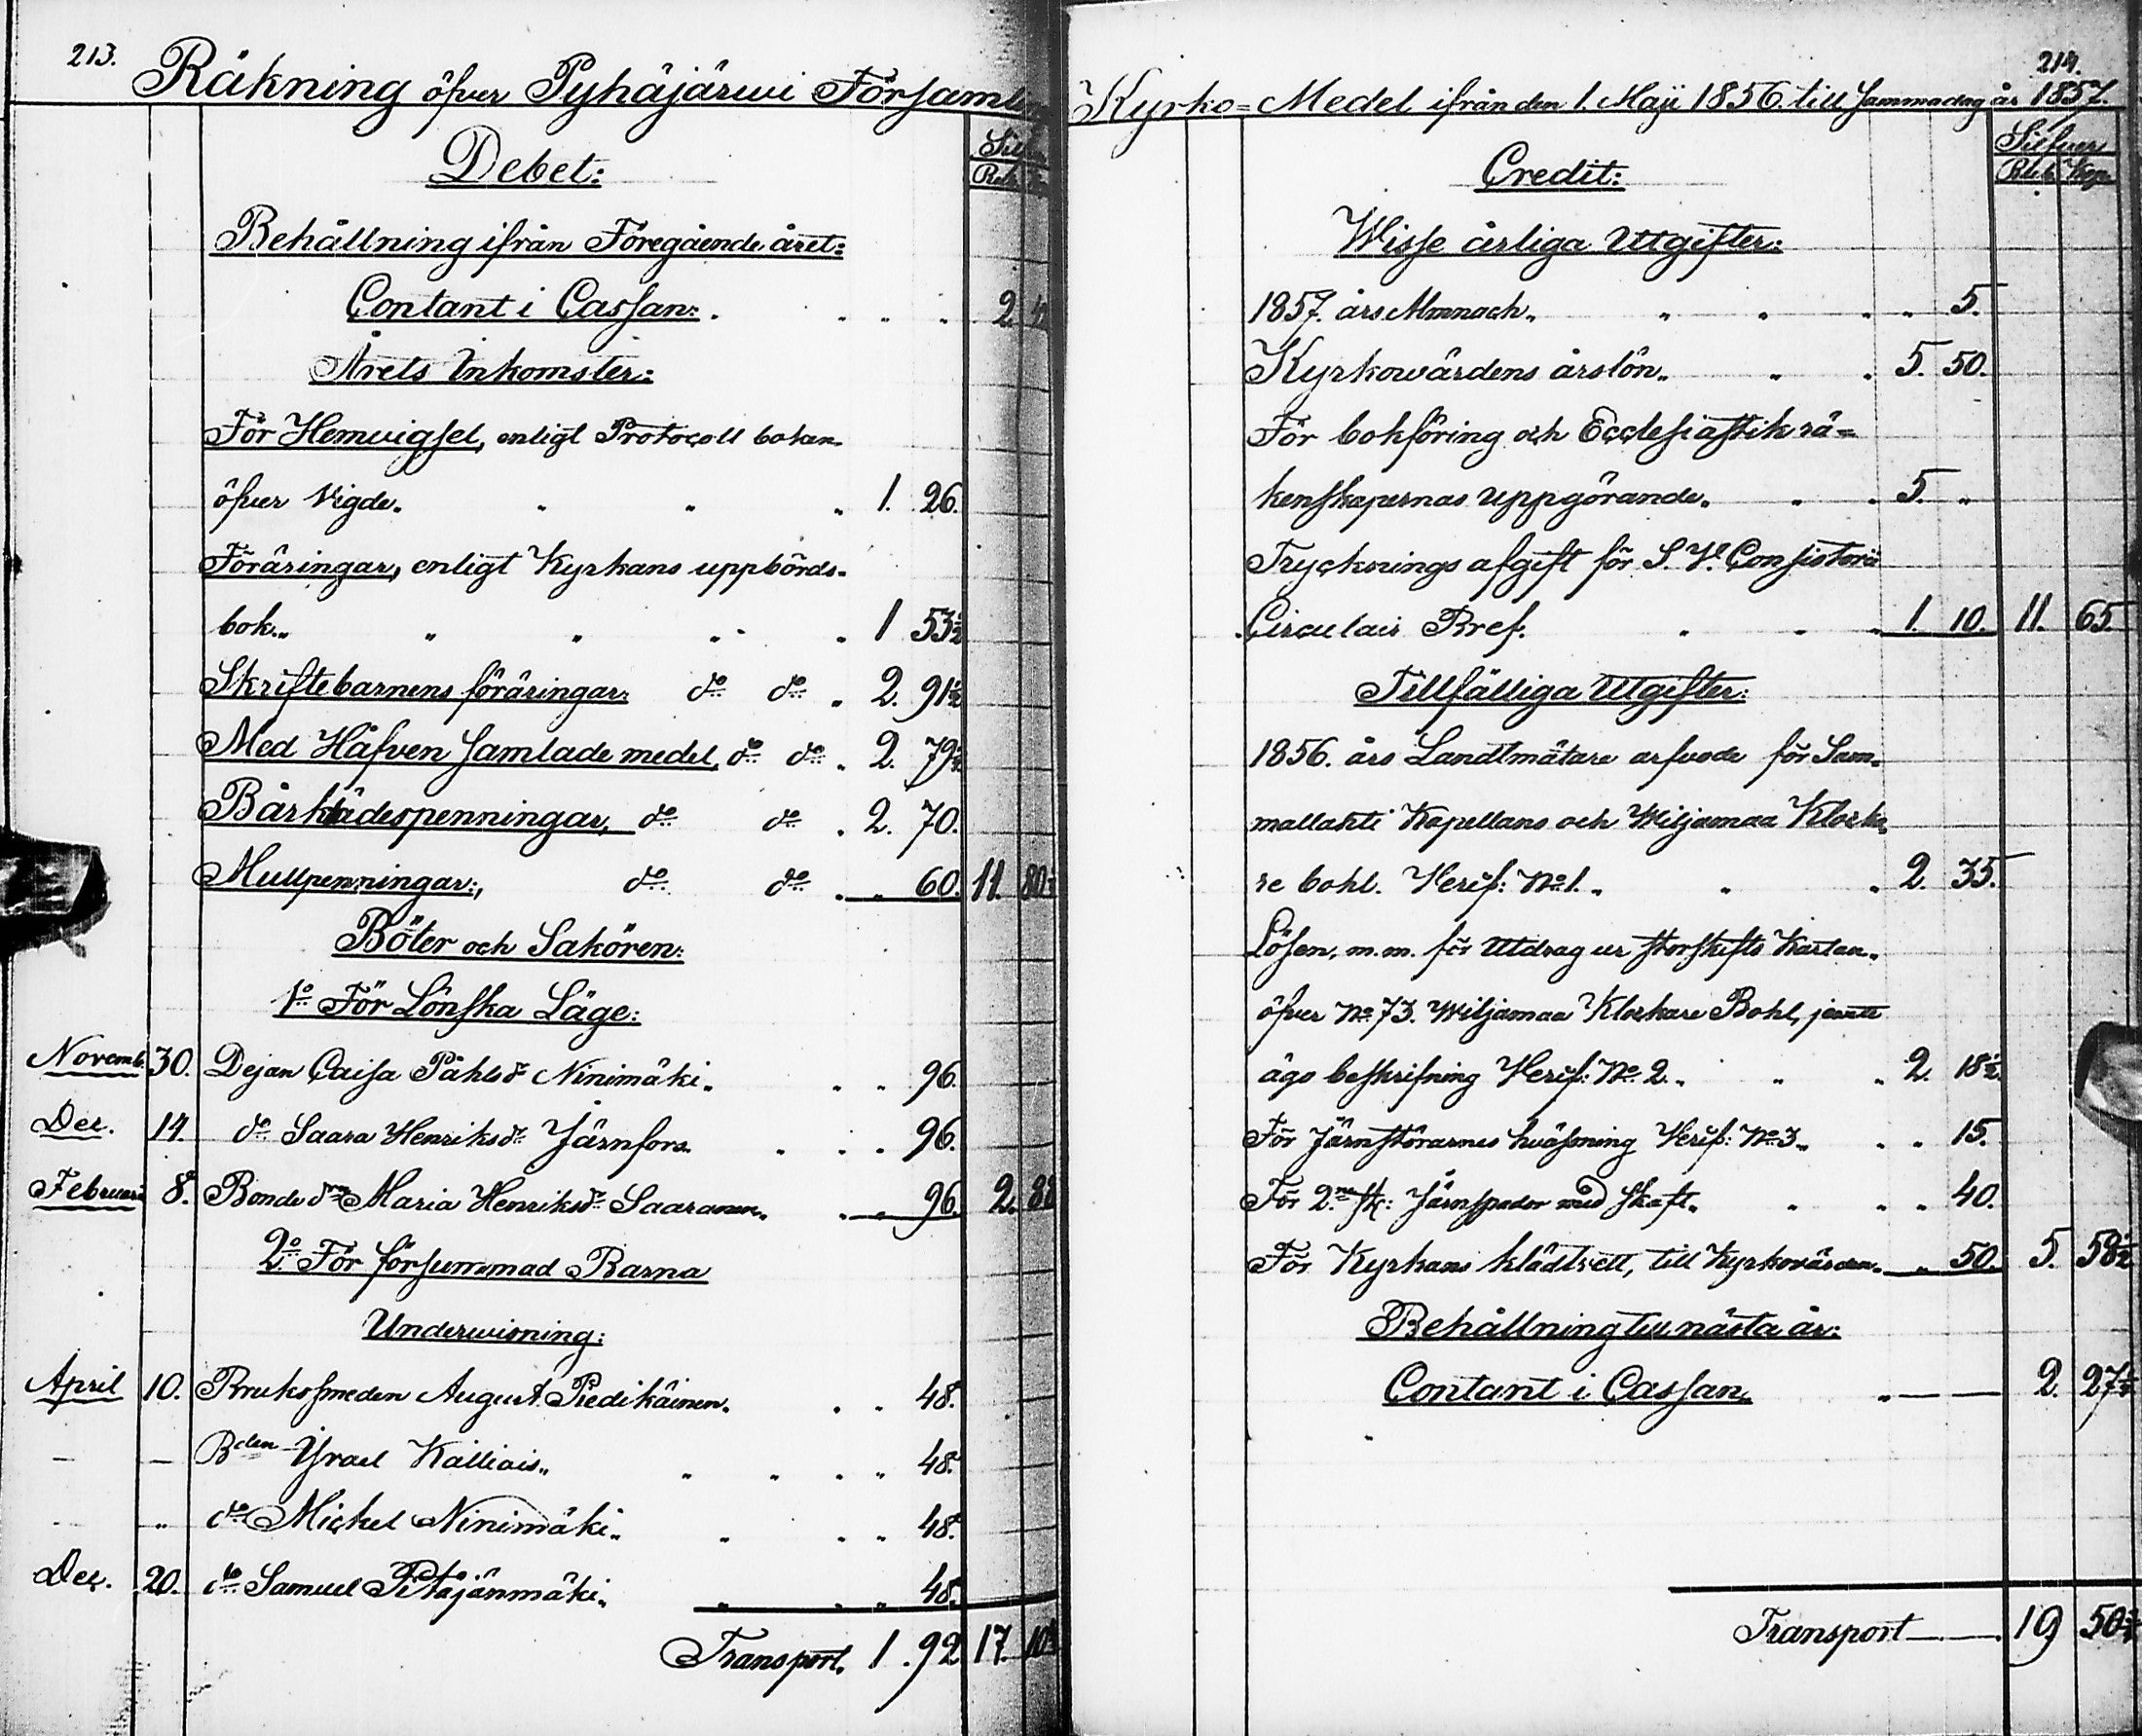 213.
Räkning öfver Pyhäjärwi Församl
Debet:
Behållning ifrån Föregående året:
Contant i Cassan: 2.
Årets Inkomster:
För Hemvigsel, enligt Protocoll boken
öfver Vigde. 1. 26.
Föräringar, enligt Kyrkans uppbörds-
bok. 1 53½
Skriftebarnens föräringar: do do 2. 91½
Med Håfven samlade medel, do do 2. 79¼
Bårklädespenningar, do do 2. 70.
Mullpenningar:, do do 60. 11. 80
Böter och Sakören:
1o För Lönska Läge:
Novemb. 30. Dejan Caisa Påhlsdr Ninimäki. 96.
Dec. 14. do Saara Henriksdr Järnfors. 96.
Februari 8. Bonde dr Maria Henriksdr Saaranen. 96. 2. 88
2o För försummad Barna
Underwisning:
April 10. Bruksmeden August Piedikäinen. 48.
— — Bden Ysrael Kalliais. 48.
— „ do Mickel Ninimäki. 48.
Dec. 20. do Samuel Petäjänmäki. 48.
Transport. 1. 92 17. 10
214.
Kyrko=Medel ifrån den 1. Maji 1856. till samma dag år 1857.
Silfver
Rbl. Kop.
Credit:
Wisse årliga Utgifter:
1857. års Almnach. 5.
Kyrkowärdens årslön. 5. 50.
För bokföring och Ecclesiastik rä=
kenskapernas uppgörande. 5. „
Trycknings afgift för S. V. Consistorii
Circulair Bref. 1. 10. 11. 65
Tillfälliga Utgifter:
1856. års Landtmätare arfvode för Sam-
mallahti Kapellans och Wiljamaa Klocka-
re bohl. Verif: No 1. 2. 35.
Lösen, m.m. för Utdrag ur Storskifts Kartan
öfver No 73. Wiljamaa Klockare Bohl, jemte
ägo beskrifning Verif: No 2. 2. 18½
För Järnstörarnes hväsning Verif: No 3. 15.
För 2ne st: Järnspador med Skaft. 40.
För Kyrkans klädtvätt, till Kyrkovärden. 50. 5. 58½
Behållning till nästa år:
Contant i Cassan. 2. 27¼
Transport 19 50¾